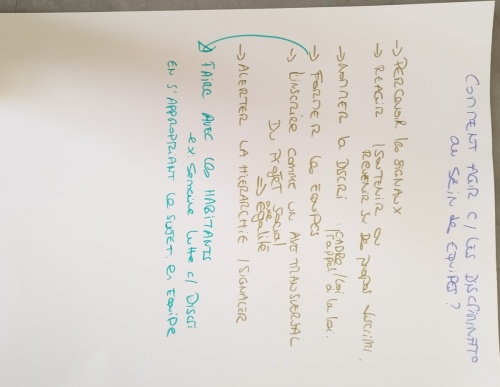 COMMENT AGIR C/ LES DISCRIMINATO
au SEIN de EQUIPES ?
→ PERCEVOIR les SIGNAUX
→ REAGIR / SOUTENIR ou
REVENIR SUR DE propos discrimi.
→ NOMMER la DISCRI : CADRE / Loi
rappel à la loi.
→ FORMER les EQUIPES
→ L'INSCRIRE COMME UN AXE TRANSVERSAL
DU PROJET social
⇒ axe égalité
→ ALERTER LA HIERARCHIE / SIGNALER
→ FAIRE AVEC les HABITANTS
ex: semaine lutte c/ Discri
EN S'APPROPRIANT le SUJET en EQUIPE